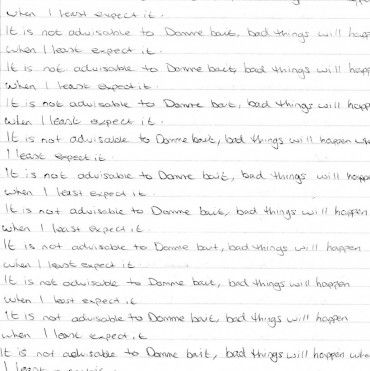 when I least expect it.
It is not advisable to Domme bait, bad things will happ
when I least expect it.
It is not advisable to Domme bait, bad things will happ
when I least expect it.
It is not advisable to Domme bait, bad things will happ
when I least expect it.
It is not advisable to Domme bait, bad things will happen whe
I least expect it.
It is not advisable to Domme bait, bad things will happe
when I least expect it.
It is not advisable to Domme bait, bad things will happen
when I least expect it.
It is not advisable to Domme bait, bad things will happen
when I least expect it.
It is not advisable to Domme bait, bad things will happen
when I least expect it.
It is not advisable to Domme bait, bad things will happen
when I least expect it
It is not advisable to Domme bait, bad things will happen whe
I least expect it